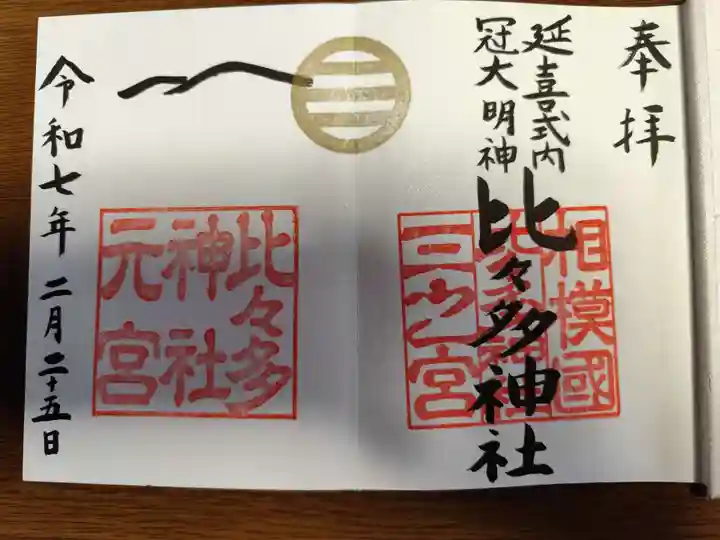 奉拝
延喜式内
冠大明神
比々多神社
相模國
比々多神社
三之宮
比々多
神社
元宮
令和七年二月二十五日